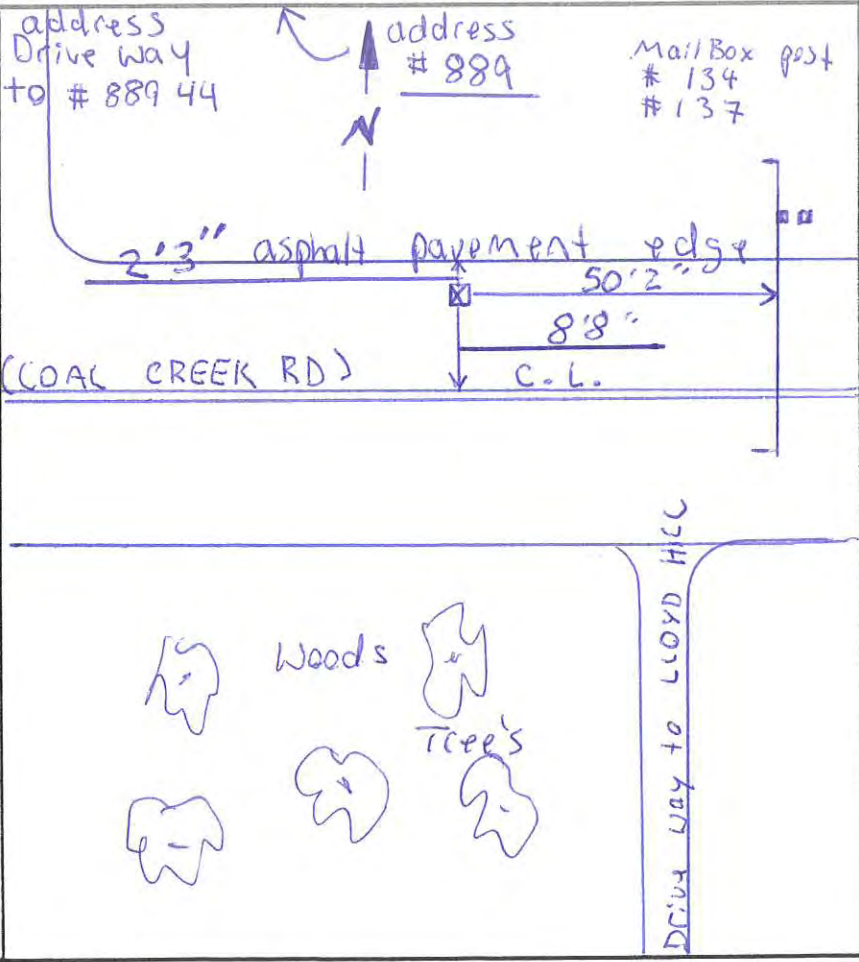 address
Drive way
to # 889 44
address
# 889
MailBox post
# 134
# 137
N
2'3" asphalt pavement edge
50'2"
8'8"
(COAL CREEK RD)
C.L.
Woods
Tree's
Drive way to LLOYD HILL